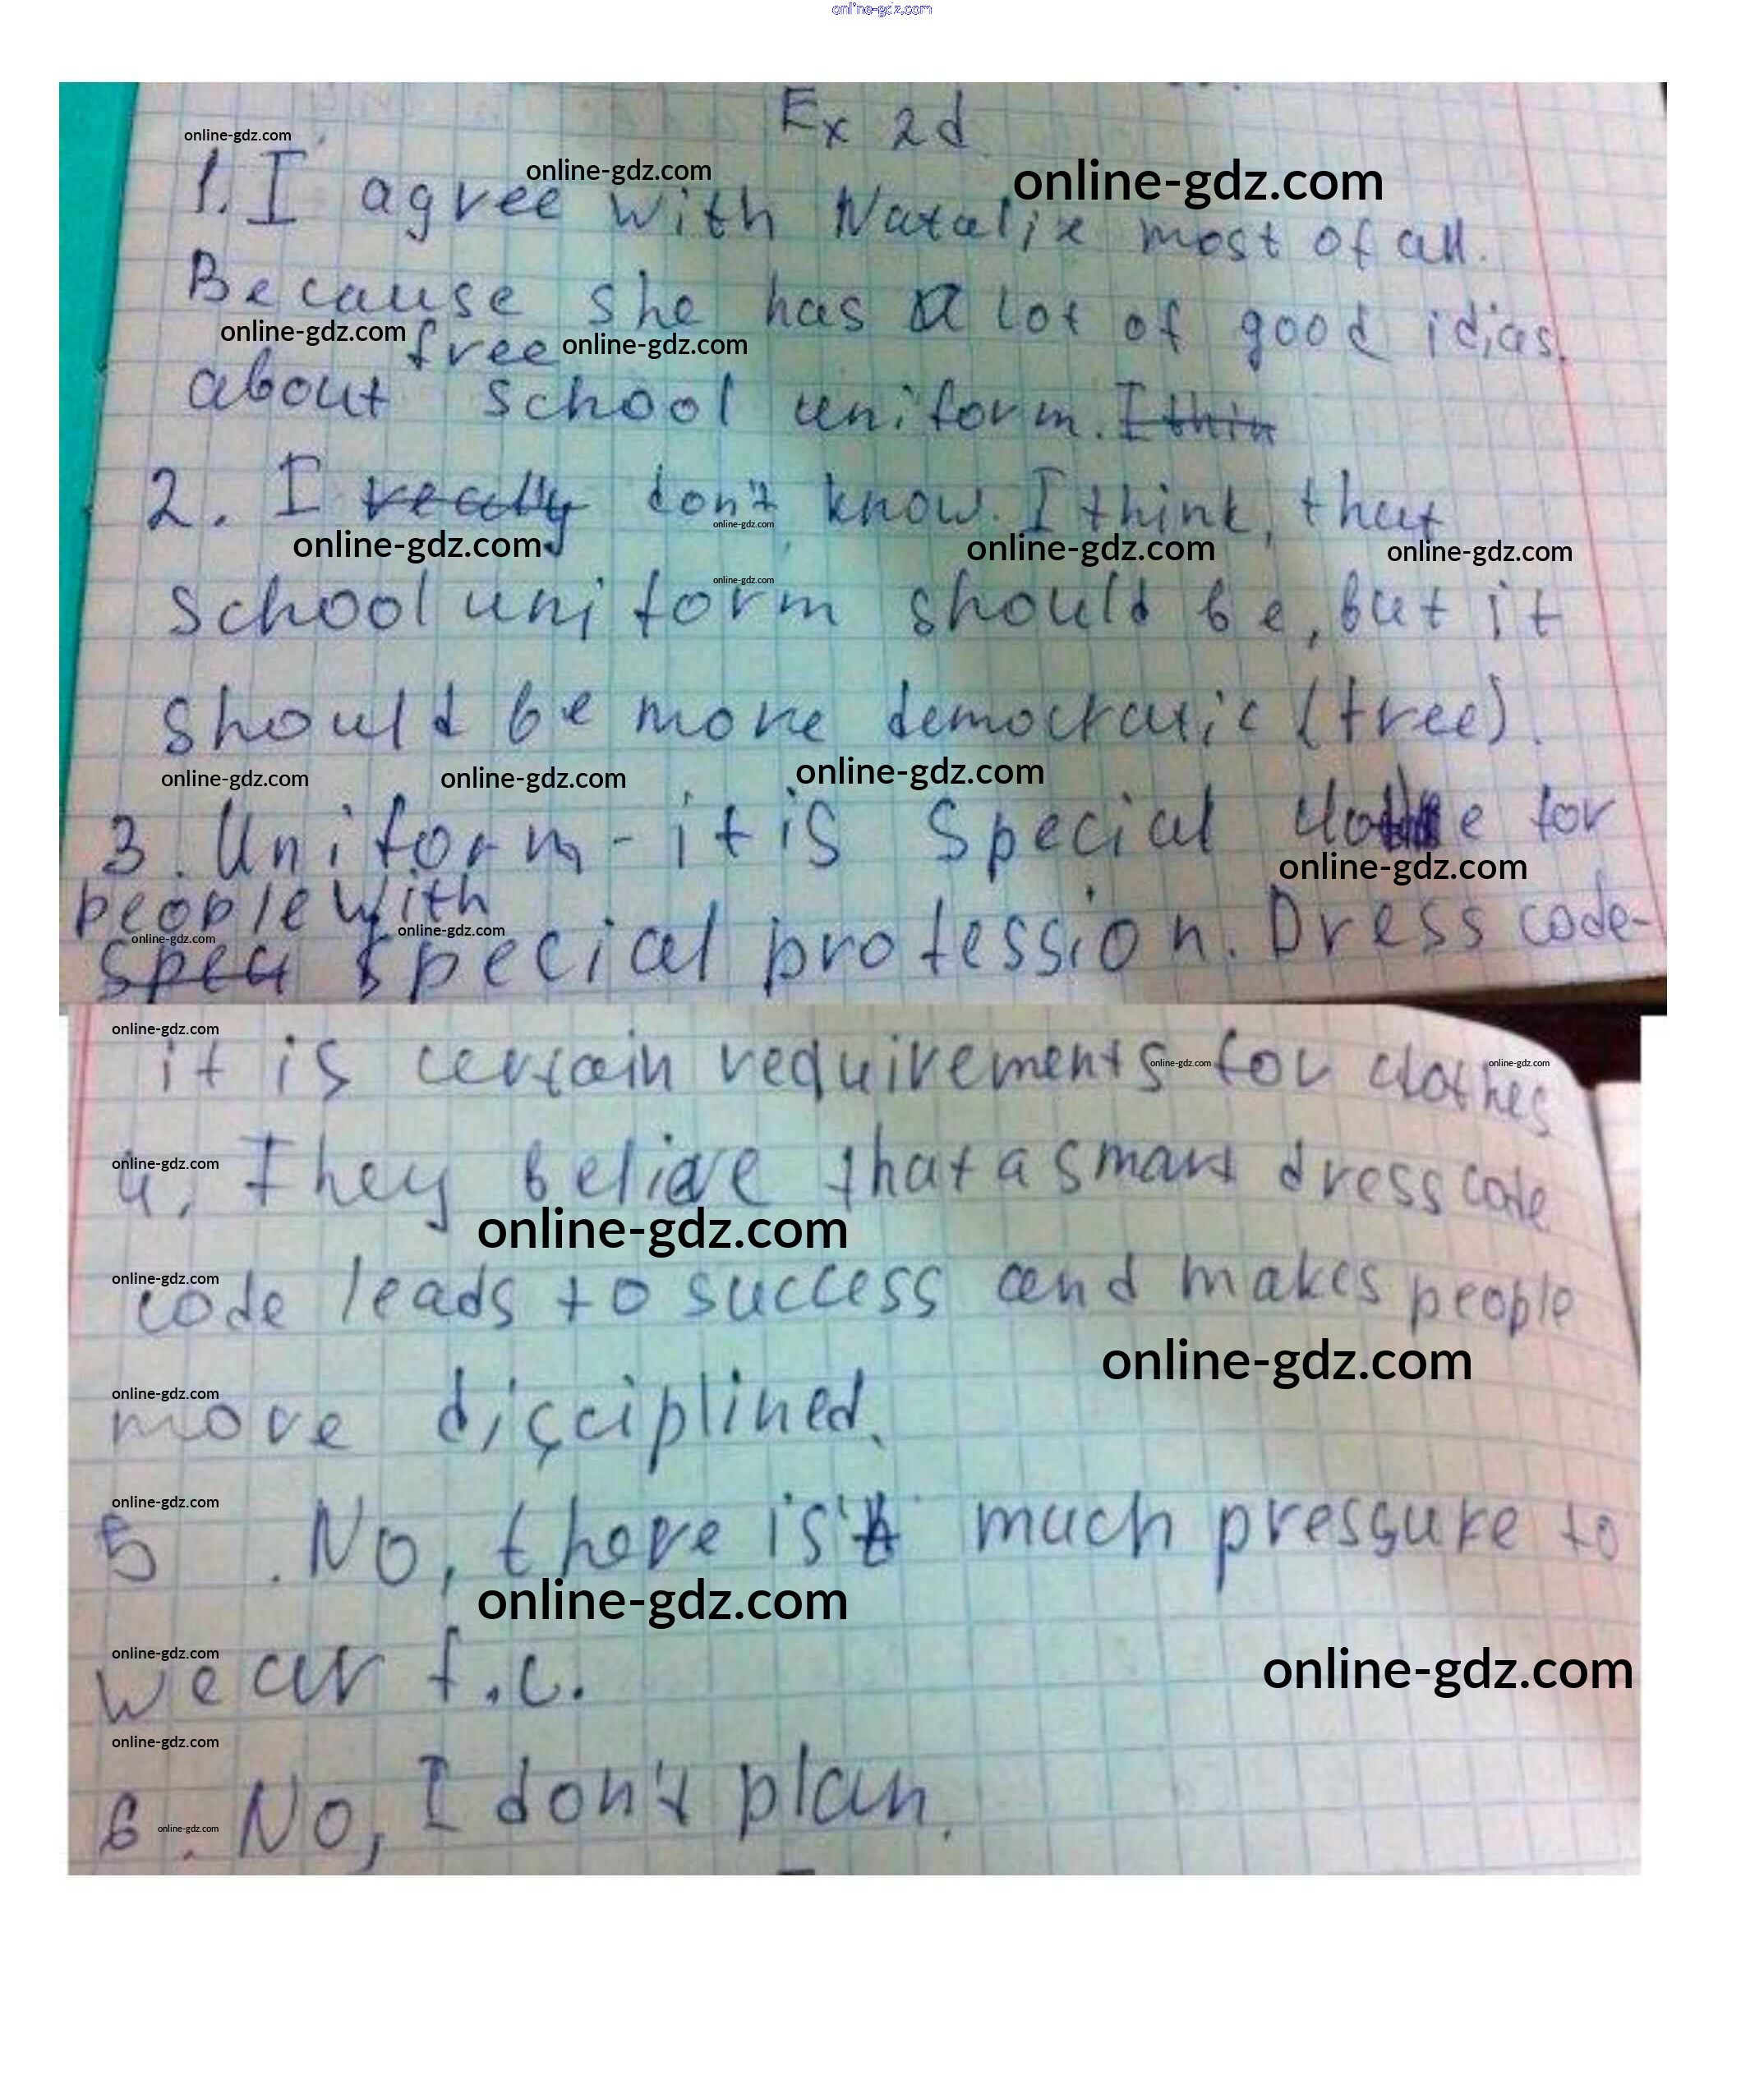 online-gdz.com
Ex 2d
online-gdz.com
online-gdz.com
online-gdz.com
1. I agree with Natalie most of all.
Because she has a lot of good idias
online-gdz.com free online-gdz.com
about school uniform. I thin
2. I really don't know. I think, that
online-gdz.com
online-gdz.com online-gdz.com online-gdz.com
online-gdz.com
school uniform should be, but it
should be more democratic (free).
online-gdz.com online-gdz.com online-gdz.com
3. Uniform - it is special clothe for
online-gdz.com
people with
online-gdz.com online-gdz.com
spec special profession. Dress code-
online-gdz.com
it is certain requirements for clothes
online-gdz.com online-gdz.com
online-gdz.com
4. They believe that a smart dress code
online-gdz.com
online-gdz.com
code leads to success and makes people
online-gdz.com
online-gdz.com
more disciplined.
online-gdz.com
5. No, there is't much pressure to
online-gdz.com
online-gdz.com
online-gdz.com
wear f.c.
online-gdz.com
6. No, I don't plan.
online-gdz.com